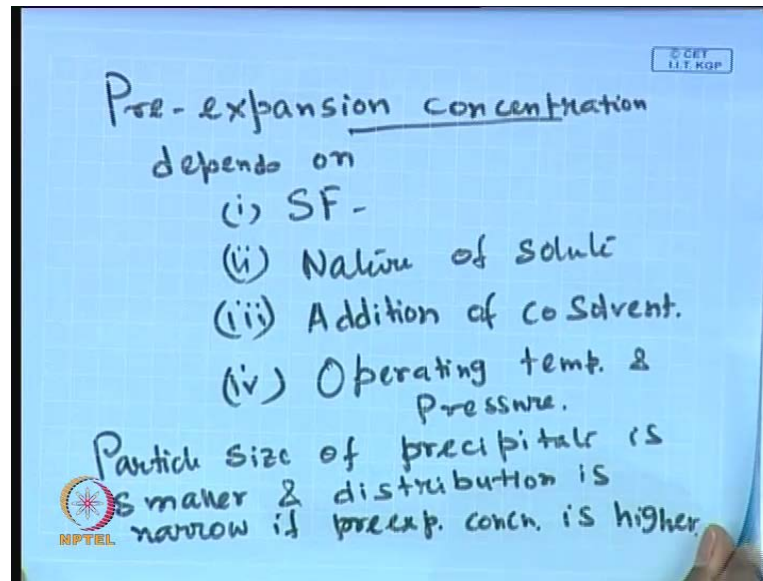 © CET
I.I.T. KGP
Pre-expansion concentration
depends on
(i) SF-
(ii) Nature of solute
(iii) Addition of cosolvent.
(iv) Operating temp. &
Pressure.
Particle size of precipitate is
smaller & distribution is
narrow if preexp. concn. is higher.
NPTEL